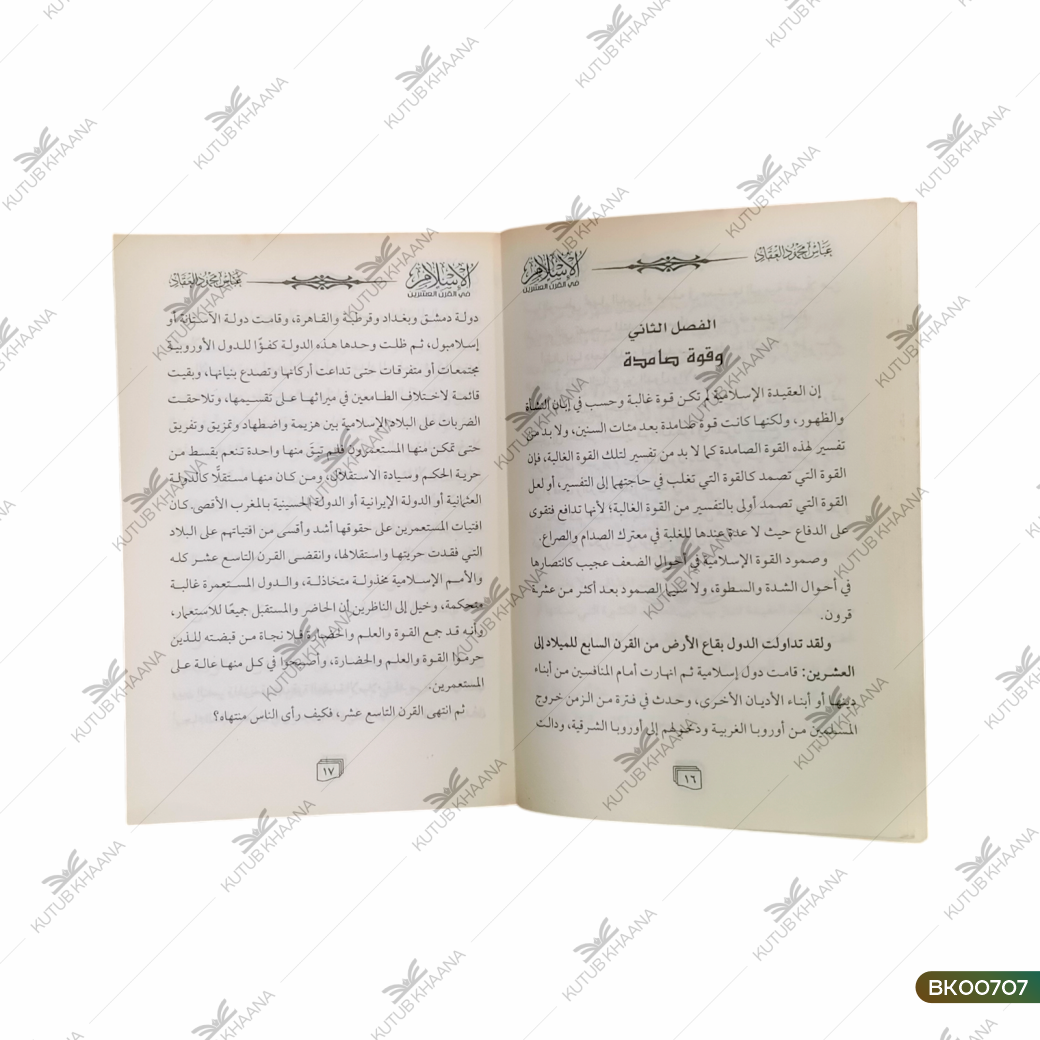 عباس محمود العقاد
الإسلام
في القرن العشرين
الفصل الثاني
وقوة صامدة
إن العقيدة الإسلامية لم تكن قوة غالبة وحسب في إبان النشأة
والظهور، ولكنها كانت قوة صامدة بعد مئات السنين، ولا بد من
تفسير لهذه القوة الصامدة كما لا بد من تفسير لتلك القوة الغالبة، فإن
القوة التي تصمد كالقوة التي تغلب في حاجتهما إلى التفسير، أو لعل
القوة التي تصمد أولى بالتفسير من القوة الغالبة؛ لأنها تدافع فتقوى
على الدفاع حيث لا عدة عندها للغلبة في معترك الصدام والصراع.
وصمود القوة الإسلامية في أحوال الضعف عجيب كانتصارها
في أحوال الشدة والسطوة، ولا سيما الصمود بعد أكثر من عشرة
قرون.
ولقد تداولت الدول بقاع الأرض من القرن السابع للميلاد إلى
العشرين: قامت دول إسلامية ثم انهارت أمام المنافسين من أبناء
دينها أو أبناء الأديان الأخرى، وحدث في فترة من الزمن خروج
المسلمين من أوروبا الغربية ودخولهم إلى أوروبا الشرقية، ودالت
١٦
الإسلام
في القرن العشرين
عباس محمود العقاد
دولة دمشق وبغداد وقرطبة والقاهرة، وقامت دولة الآستانة أو
إسلامبول، ثم ظلت وحدها هذه الدولة كفؤًا للدول الأوروبية
مجتمعات أو متفرقات حتى تداعت أركانها وتصدع بنيانها، وبقيت
قائمة لاختلاف الطامعين في ميراثها على تقسيمها، وتلاحقت
الضربات على البلاد الإسلامية بين هزيمة واضطهاد وتمزيق وتفريق
حتى تمكن منها المستعمرون فلم تبقَ منها واحدة تنعم بقسط من
حرية الحكم وسيادة الاستقلال، ومن كان منها مستقلًّا كالدولة
العثمانية أو الدولة الإيرانية أو الدولة الحسينية بالمغرب الأقصى كان
افتيات المستعمرين على حقوقها أشد وأقسى من افتياتهم على البلاد
التي فقدت حريتها واستقلالها، وانقضى القرن التاسع عشر كله
والأمم الإسلامية مخذولة متخاذلة، والدول المستعمرة غالبة
متحكمة، وخيل إلى الناظرين أن الحاضر والمستقبل جميعًا للاستعمار،
وأنه قد جمع القوة والعلم والحضارة فلا نجاة من قبضته للذين
حرموا القوة والعلم والحضارة، وأصبحوا في كل منها عالة على
المستعمرين.
ثم انتهى القرن التاسع عشر، فكيف رأى الناس منتهاه؟
١٧
KUTUB KHAANA
BK00707